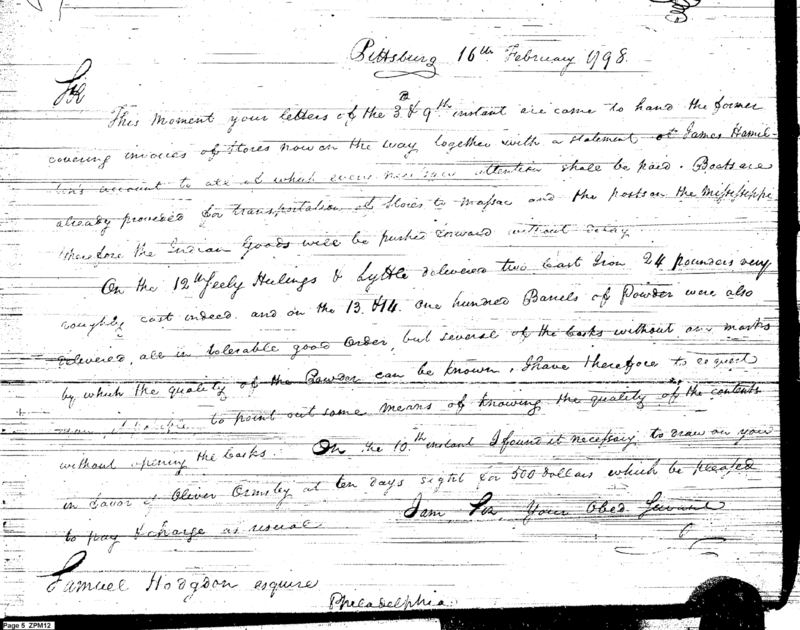 Pittsburg 16th February 1798.
Sir
This Moment your letters of the 3d & 9th instant are come to hand the former
covering invoices of stores now on the way together with a statement of James Hamil-
ton's account to all of which every necessary attention shall be paid. Boats are
already provided for transportation of Stores to Massac and the posts on the Mississippi
therefore the Indian Goods will be pushed forward without delay
On the 12th Heulings & Lyttle delivered two Cast Iron 24 pounders very
roughly cast indeed. and on the 13. & 14. One hundred Barrels of Powder were also
delivered, all in tolerable good Order, but several of the Casks without any marks
by which the quality of the Powder can be known, I have therefore to request
you, if possible, to point out some means of knowing the quality of the contents
without opening the Casks. On the 10th instant I found it necessary to draw on you
in favor of Oliver Ormsby at ten days sight for 500 dollars which be pleased
to pay & charge as usual
I am Sir, Your Obed. Servant
Samuel Hodgdon esquire
Philadelphia.
Page 5 ZPM12